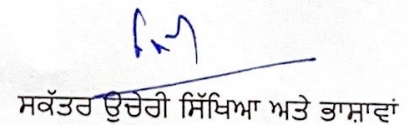 ਸਕੱਤਰ ਉਚੇਰੀ ਸਿੱਖਿਆ ਅਤੇ ਭਾਸ਼ਾਵਾਂ